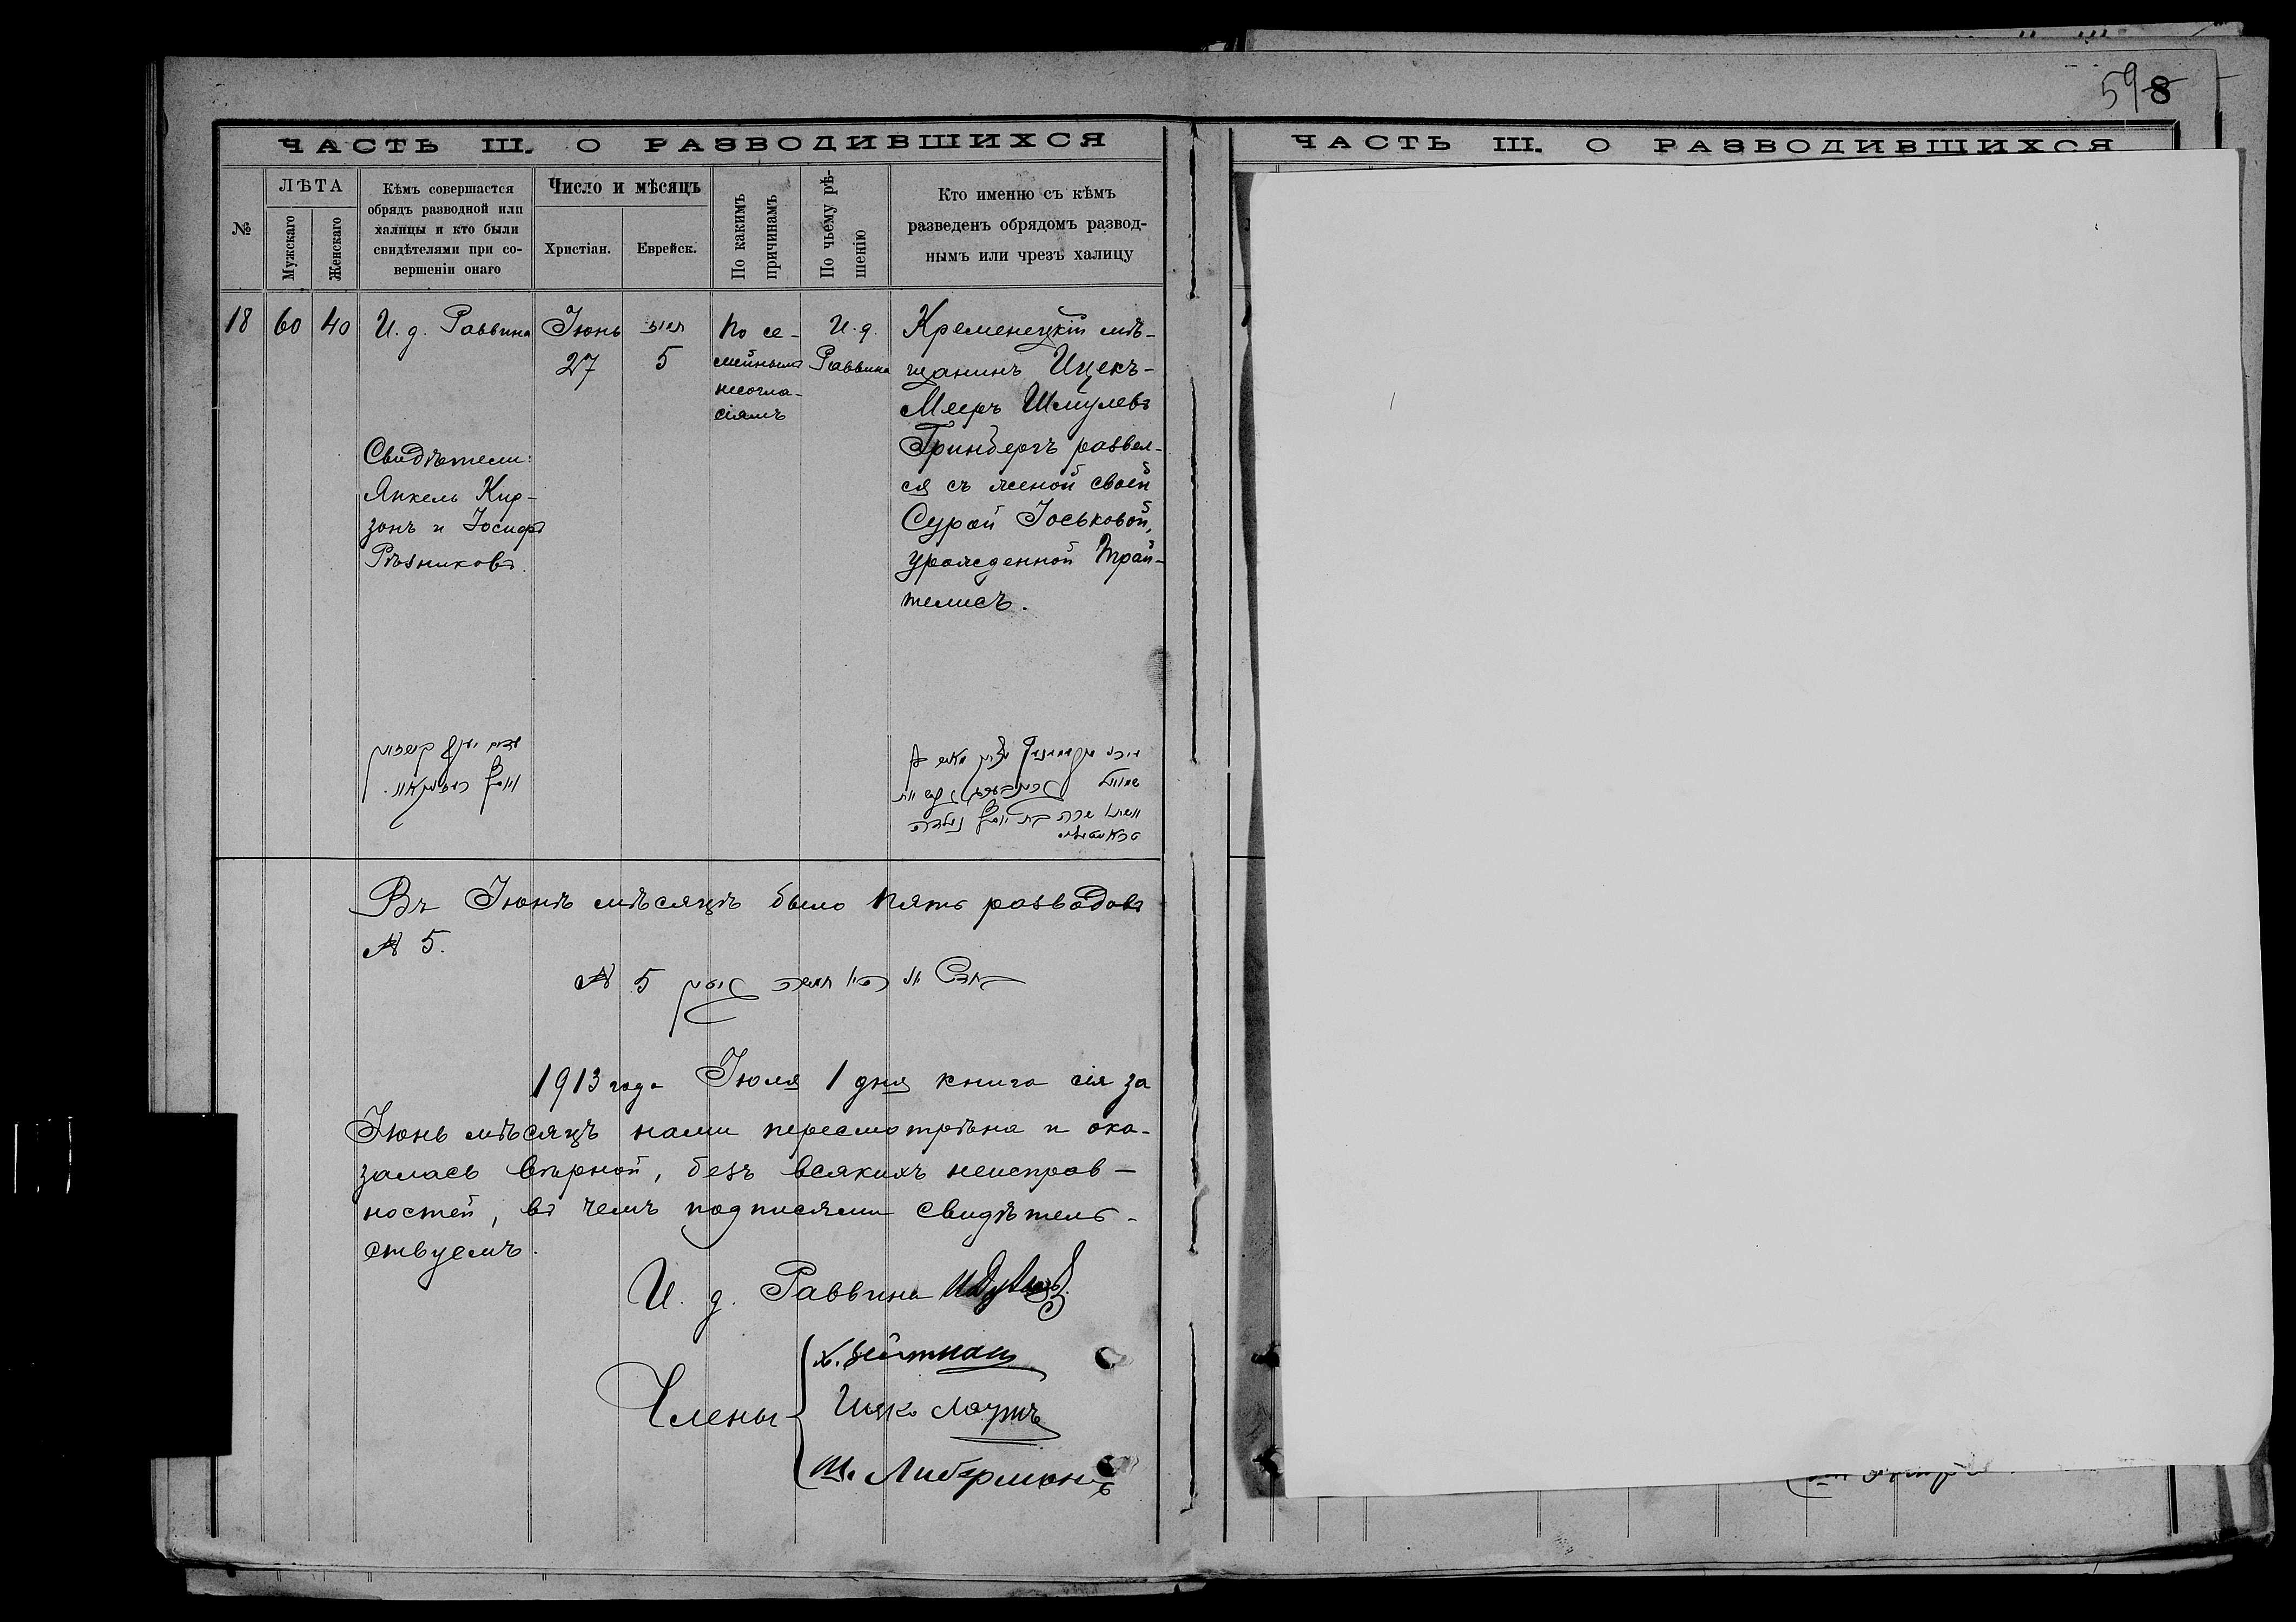 598
ЧАСТЬ III. О РАЗВОДИВШИХСЯ
№
ЛѢТА
Мужскаго
Женскаго
Кѣмъ совершается
обрядъ разводной или
халицы и кто были
свидѣтелями при со-
вершеніи онаго
Число и мѣсяцъ
Христіан.
Еврейск.
По какимъ
причинамъ
По чьему рѣ-
шенію
Кто именно съ кѣмъ
разведенъ обрядомъ развод-
нымъ или чрезъ халицу
18
60
40
И. д. Раввина
Свидѣтели:
Янкель Кир-
зонъ и Іосифъ
Рѣзниковъ.
Іюнь
27
5
По се-
мейнымъ
несогла-
сіямъ
И. д.
Раввина
Кременецкій мѣ-
щанинъ Ицекъ-
Мееръ Шмулевъ
Гринбергъ развел-
ся съ женой своей
Сурой Іоськовой,
урожденной Трай-
телисъ.
Въ Іюнѣ мѣсяцѣ было пять разводовъ
№ 5.
№ 5
1913 года Іюля 1 дня книга сія за
Іюнь мѣсяцъ нами пересмотрѣна и ока-
залась вѣрной, безъ всякихъ неисправ-
ностей, въ чемъ подписями свидѣтель-
ствуемъ.
И. д. Раввина
Члены
Ш. Либерманъ
ЧАСТЬ III. О РАЗВОДИВШИХСЯ